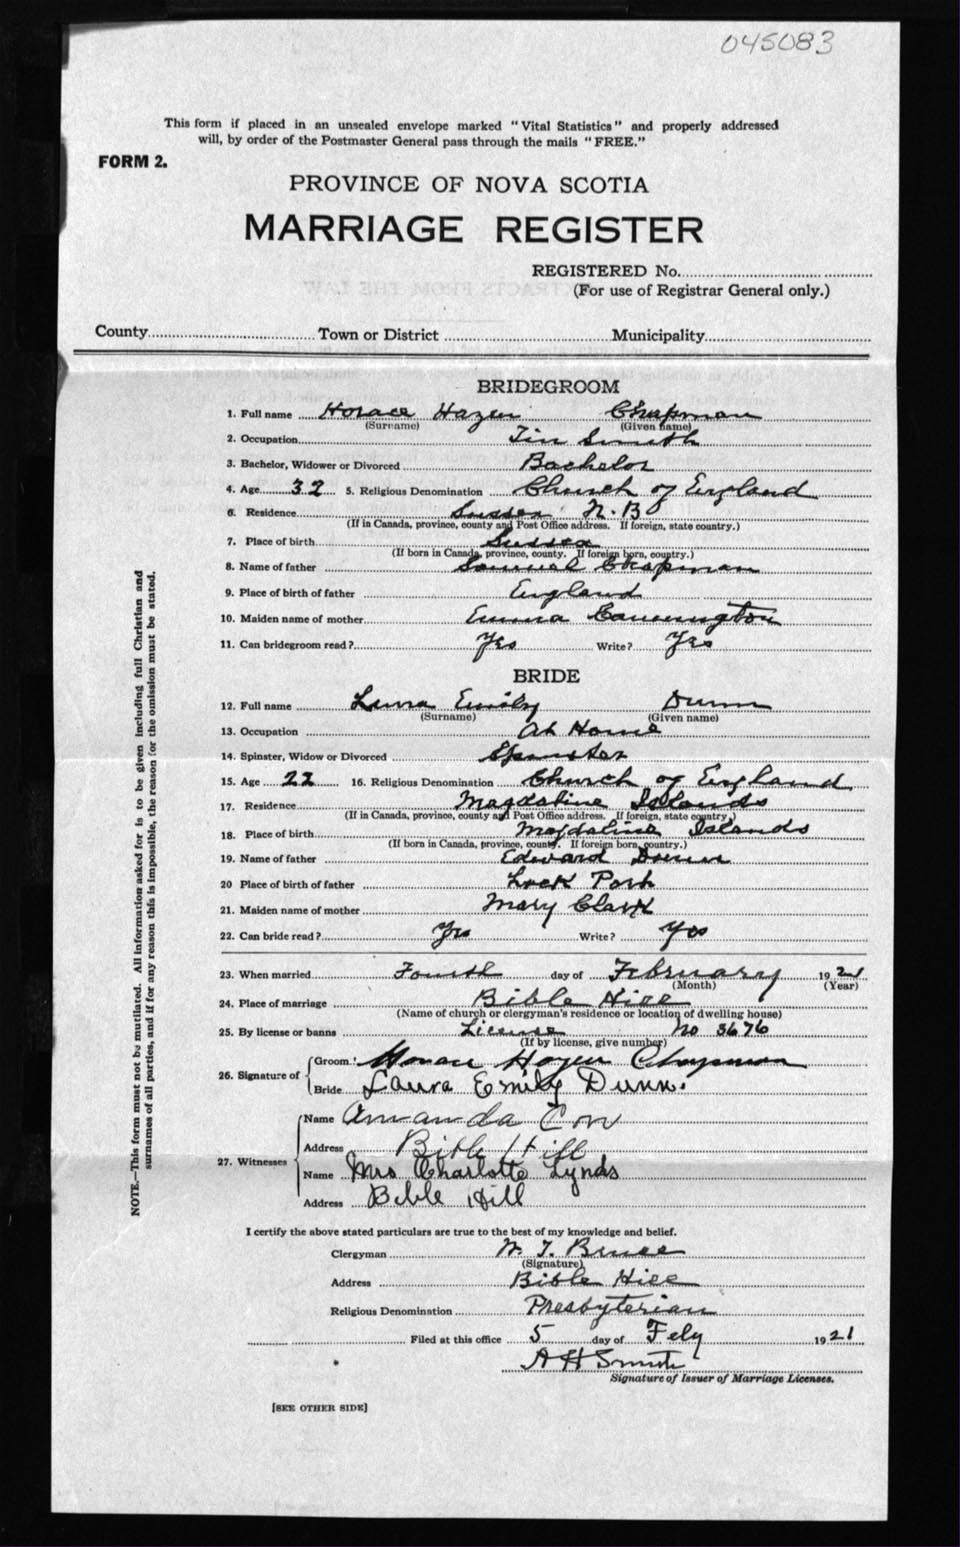 045083
This form if placed in an unsealed envelope marked "Vital Statistics" and properly addressed
will, by order of the Postmaster General pass through the mails "FREE."
FORM 2.
PROVINCE OF NOVA SCOTIA
MARRIAGE REGISTER
REGISTERED No.
(For use of Registrar General only.)
County Town or District Municipality
BRIDEGROOM
1. Full name Horace Hazen Chapman
(Surname) (Given name)
2. Occupation Tin Smith
3. Bachelor, Widower or Divorced Bachelor
4. Age 32 5. Religious Denomination Church of England
6. Residence Sussex N.B
(If in Canada, province, county and Post Office address. If foreign, state country.)
7. Place of birth Sussex
(If born in Canada, province, county. If foreign born, country.)
8. Name of father Samuel Chapman
9. Place of birth of father England
10. Maiden name of mother Emma
11. Can bridegroom read? Yes Write? Yes
BRIDE
12. Full name Emily Dunn
(Surname) (Given name)
13. Occupation At Home
14. Spinster, Widow or Divorced Spinster
15. Age 22 16. Religious Denomination Church of England
17. Residence Magdaline Islands
(If in Canada, province, county and Post Office address. If foreign, state country.)
18. Place of birth Magdaline Islands
(If born in Canada, province, county. If foreign born, country.)
19. Name of father Edward Dunn
20 Place of birth of father Lock Port
21. Maiden name of mother Mary Clark
22. Can bride read? Yes Write? Yes
23. When married Fourth day of February 1921
(Month) (Year)
24. Place of marriage Bible Hill
(Name of church or clergyman's residence or location of dwelling house)
25. By license or banns License No 3676
(If by license, give number)
26. Signature of Groom Horace Hazen Chapman
Bride Laura Emily Dunn.
27. Witnesses
Name Amanda
Address Bible Hill
Name Mrs Charlotte Lynds
Address Bible Hill
I certify the above stated particulars are true to the best of my knowledge and belief.
Clergyman W. T. Bruce
(Signature)
Address Bible Hill
Religious Denomination Presbyterian
Filed at this office 5 day of Feby 1921
A H Smith
Signature of Issuer of Marriage Licenses.
[SEE OTHER SIDE]
NOTE.—This form must not be mutilated. All information asked for is to be given including full Christian and
surnames of all parties, and if for any reason this is impossible, the reason for the omission must be stated.